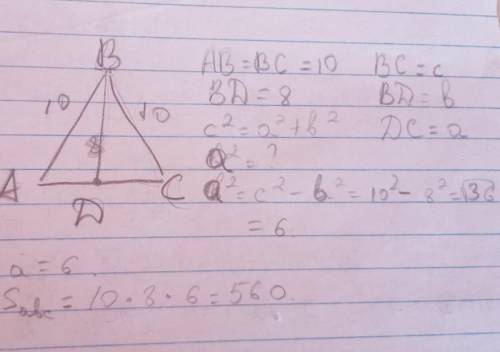 B
10 10
8
A C
D
AB = BC = 10 BC = c
BD = 8 BD = b
c² = a² + b² DC = a
a² = ?
a² = c² - b² = 10² - 8² = √36
= 6.
a = 6.
Sabc = 10 · 8 · 6 = 560.